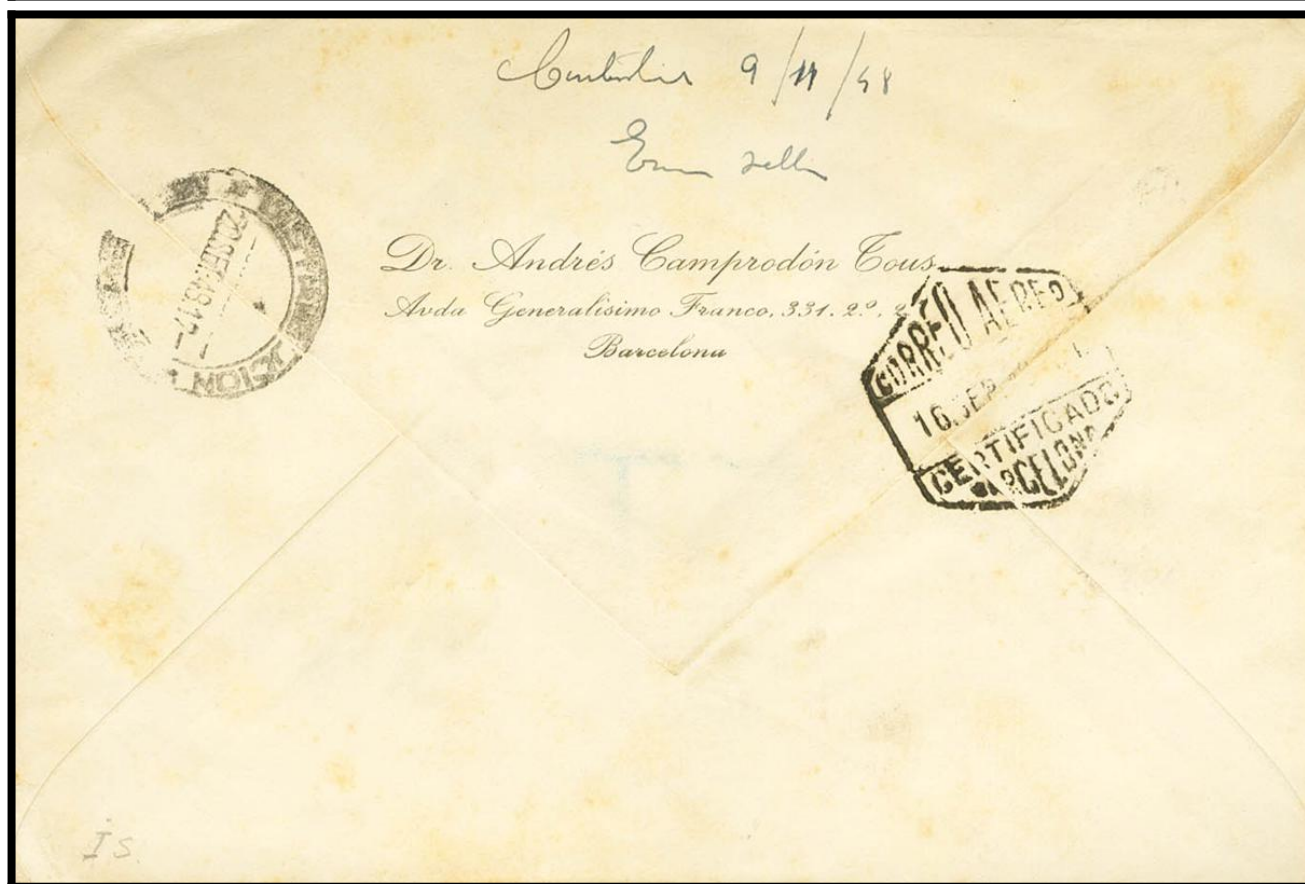 9/11/48
Dr. Andrés Camprodón Tous
Avda Generalísimo Franco, 331. 2º, 2
Barcelona
CORREO AEREO
16.SEP
CERTIFICADO
BARCELONA
20.SET.48.17
IS.